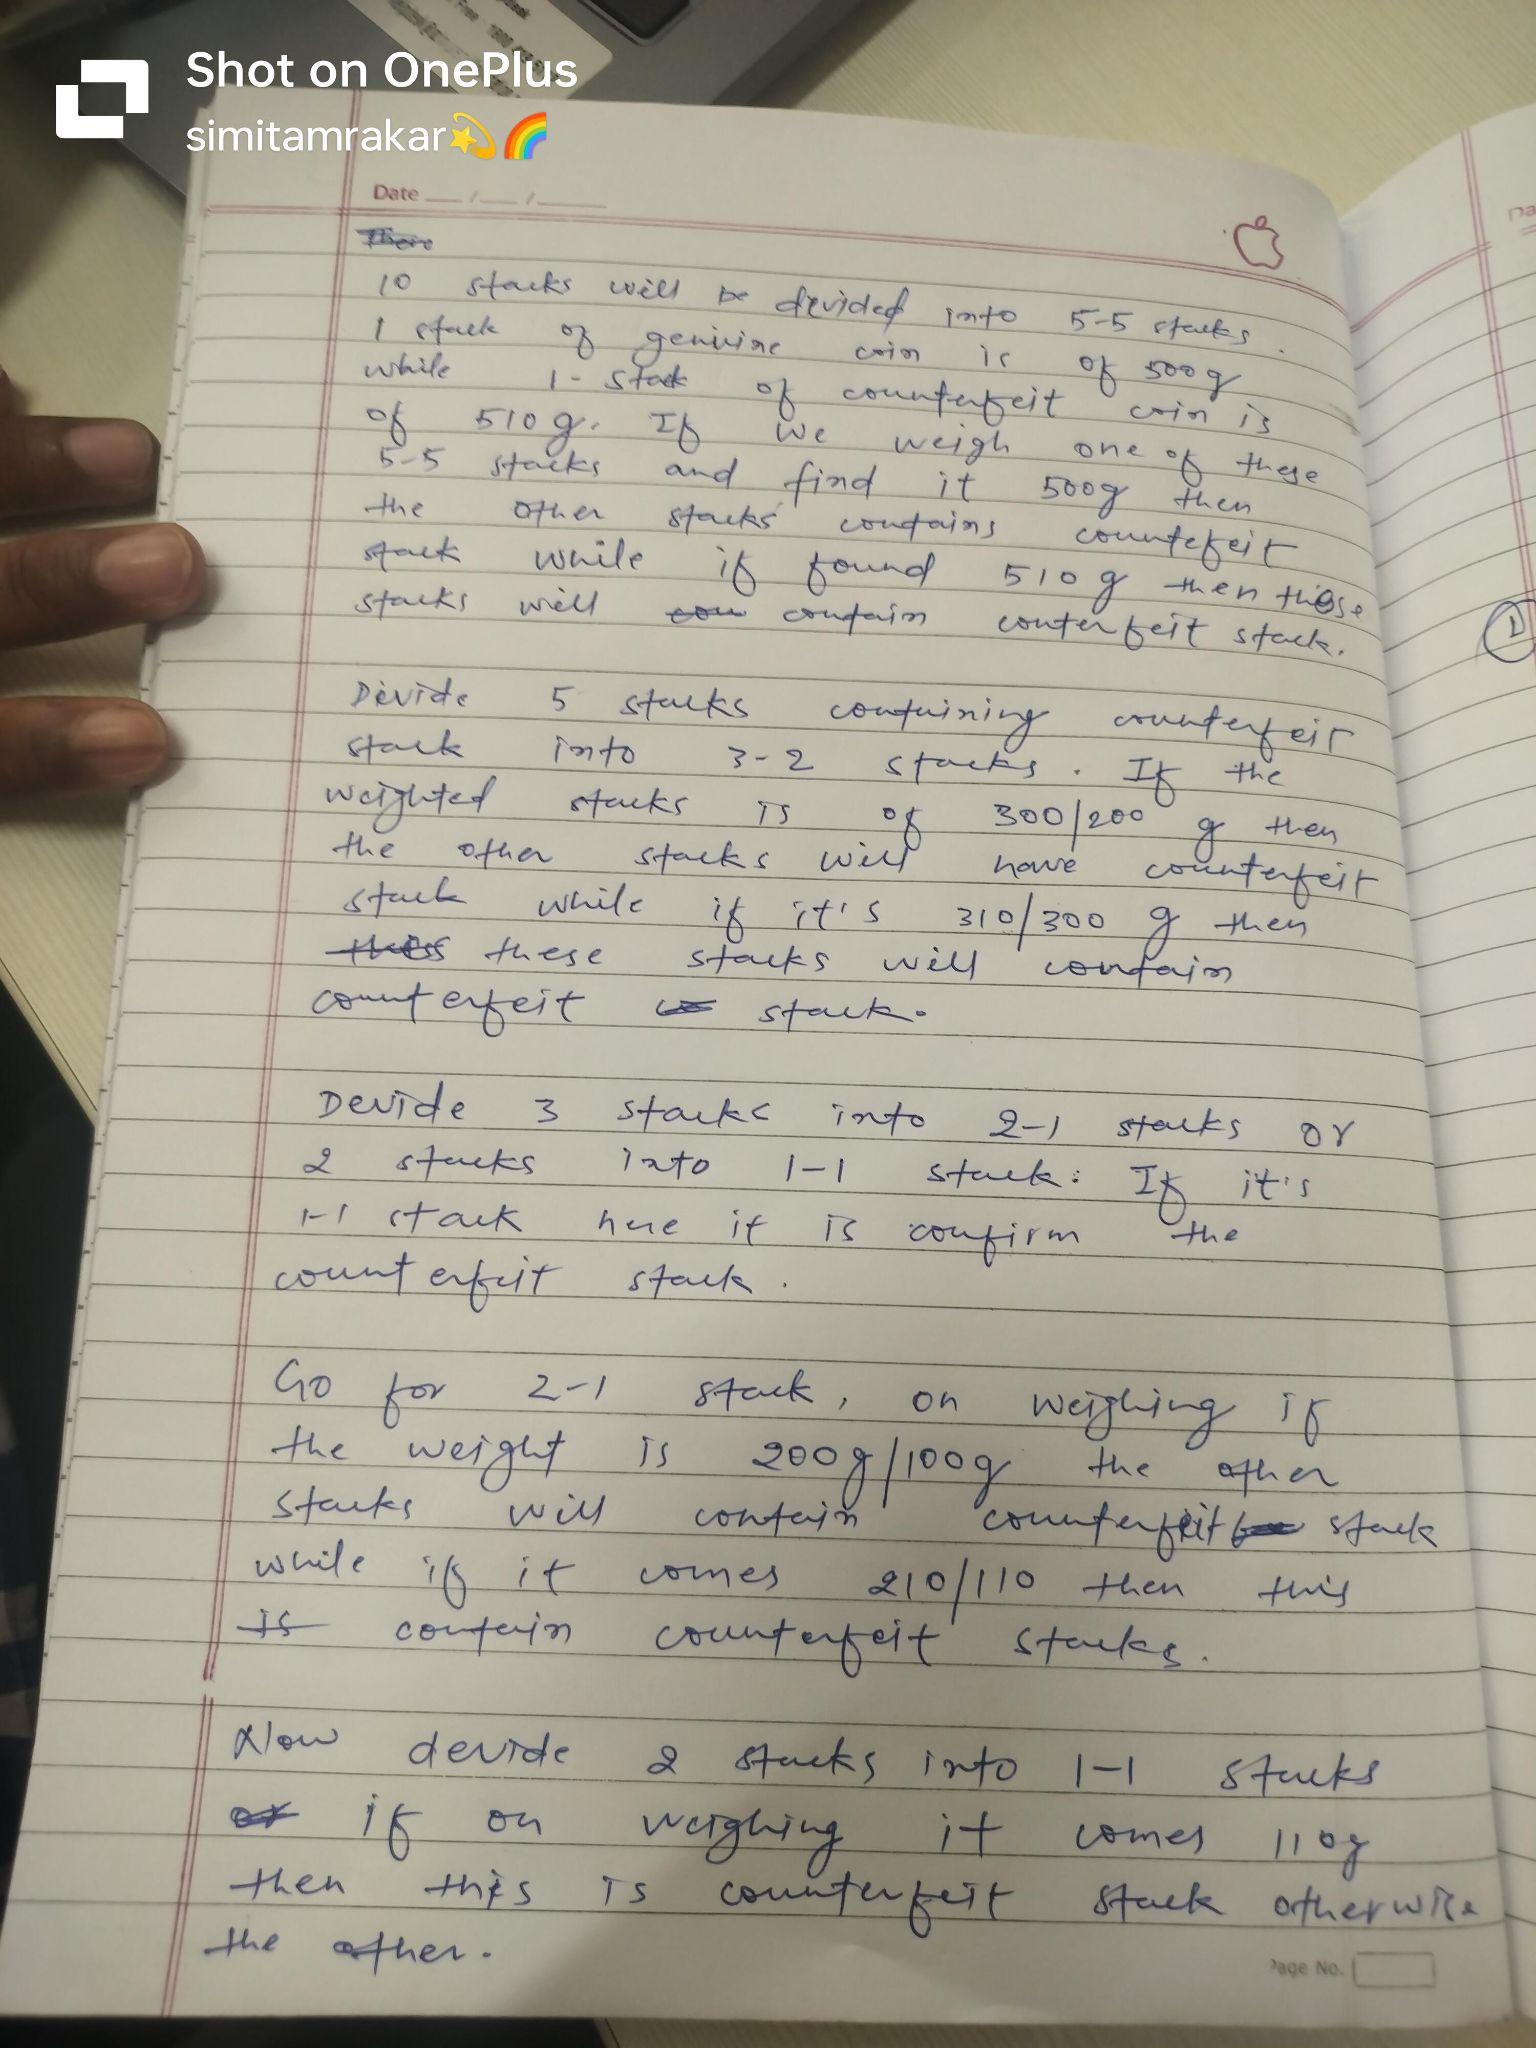 Shot on OnePlus
simitamrakar💫🌈
Date __/__/____
There
10 stacks will be divided into 5-5 stacks.
1 stack of genuine coin is of 500g
while 1-stack of counterfeit coin is
of 510g. If we weigh one of these
5-5 stacks and find it 500g then
the other stacks contains countefeit
stack while if found 510g then those
stacks will con contain conterfeit stack.
Divide 5 stacks containing counterfeit
stack into 3-2 stacks. If the
weighted stacks is of 300/200 g then
the other stacks will have counterfeit
stack while if it's 310/300 g then
these stacks will contain
counterfeit stack.
Devide 3 stacks into 2-1 stacks or
2 stacks into 1-1 stack. If it's
1-1 stack here it is confirm the
counterfeit stack.
Go for 2-1 stack, on weighing if
the weight is 200g/100g the other
stacks will contain counterfeit stack
while if it comes 210/110 then this
is contain counterfeit stacks.
Now devide 2 stacks into 1-1 stacks
or if on weighing it comes 110g
then this is counterfeit stack otherwise
the other.
Page No.
1